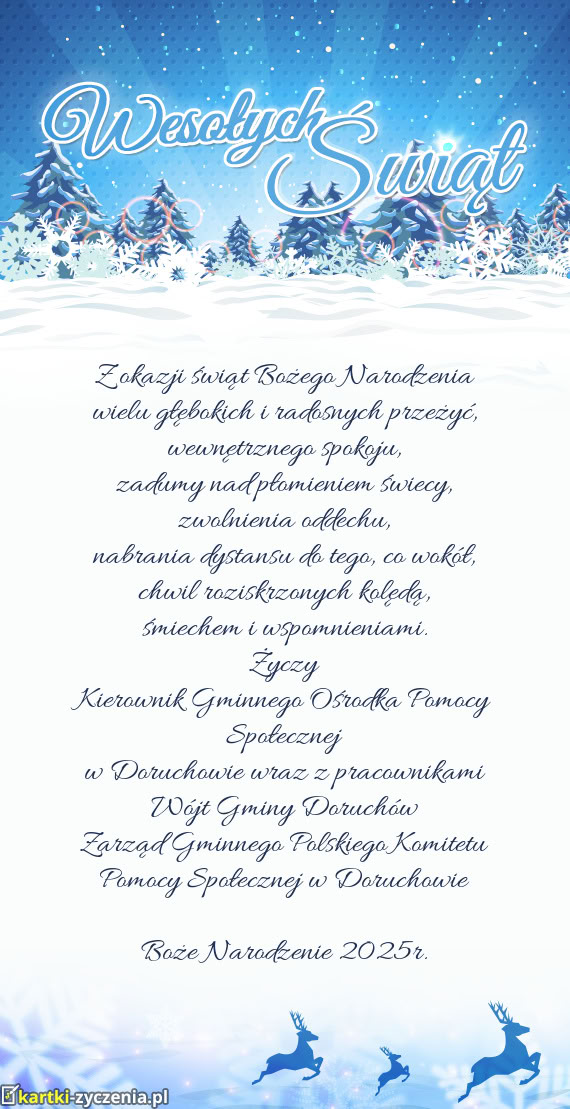 Wesołych
Świąt
Z okazji świąt Bożego Narodzenia
wielu głębokich i radosnych przeżyć,
wewnętrznego spokoju,
zadumy nad płomieniem świecy,
zwolnienia oddechu,
nabrania dystansu do tego, co wokół,
chwil roziskrzonych kolędą,
śmiechem i wspomnieniami.
Życzy
Kierownik Gminnego Ośrodka Pomocy
Społecznej
w Doruchowie wraz z pracownikami
Wójt Gminy Doruchów
Zarząd Gminnego Polskiego Komitetu
Pomocy Społecznej w Doruchowie
Boże Narodzenie 2025r.
kartki-zyczenia.pl